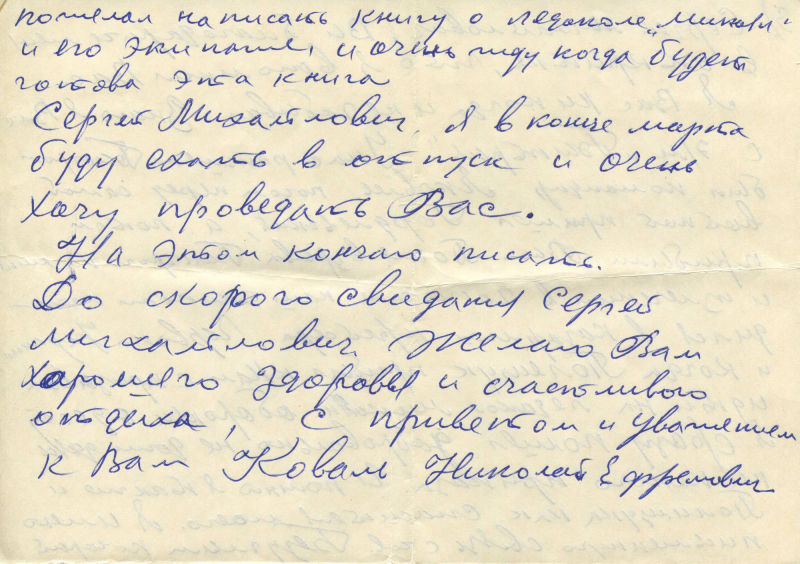 пожелал написать книгу о ледоколе „Микоян"
и его экипаже, и очень жду когда будет
готова эта книга
Сергей Михайлович, Я в конце марта
буду ехать в отпуск и очень
хочу проведать Вас.
На этом кончаю писать.
До скорого свидания Сергей
Михайлович. Желаю Вам
хорошего здоровья и счастливого
отдыха, С приветом и уважением
к Вам Коваль Николай Ефремович